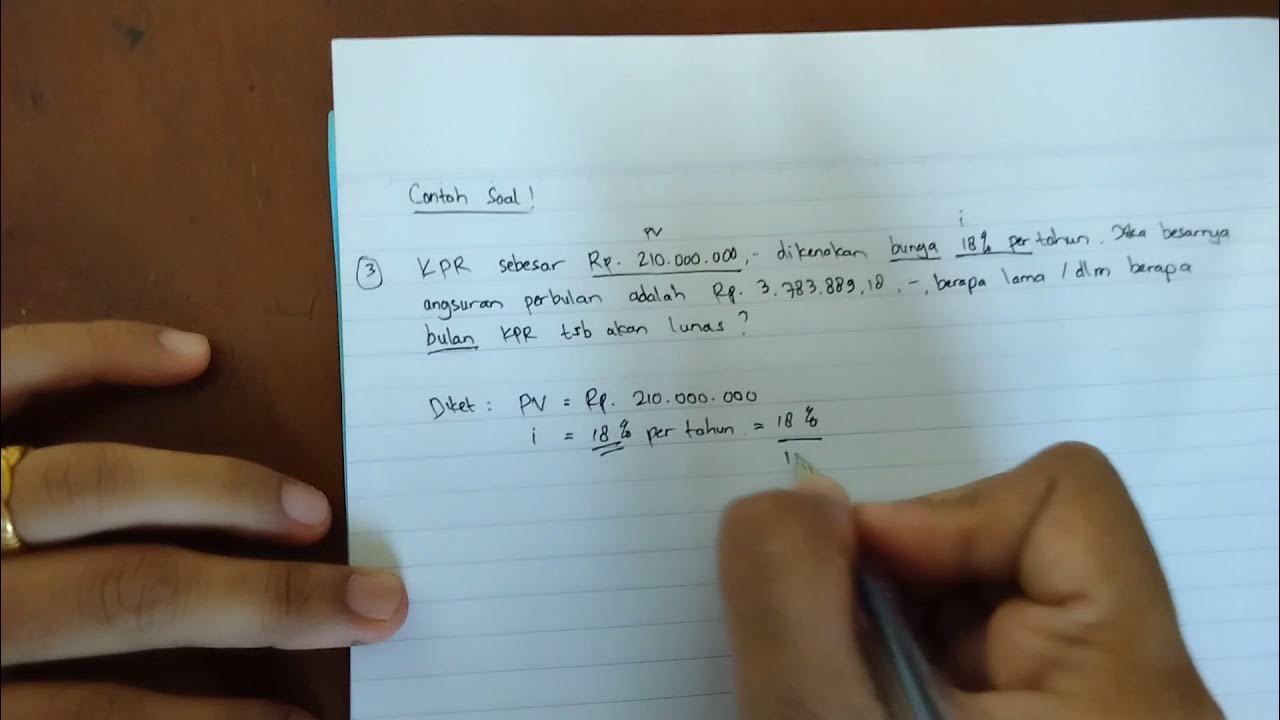 Contoh Soal!
PV
i
③ KPR sebesar Rp. 210.000.000,- dikenakan bunga 18% per tahun. Jika besarnya
angsuran perbulan adalah Rp. 3.783.889,18.-, berapa lama / dlm berapa
bulan KPR tsb akan lunas?
Diket : PV = Rp. 210.000.000
i = 18% per tahun = 18%